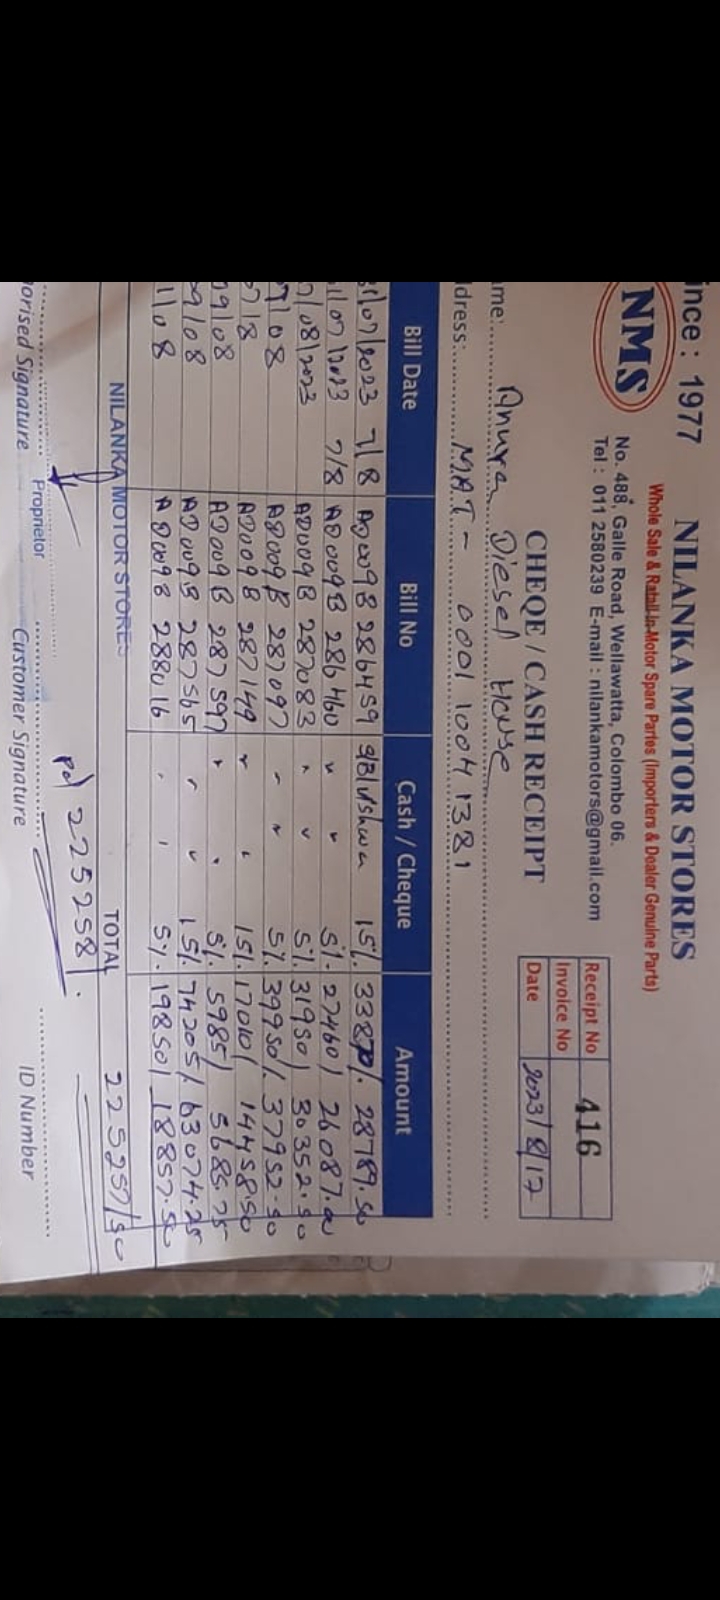 ince : 1977
NMS
NILANKA MOTOR STORES
Whole Sale & Retail in Motor Spare Partes (Importers & Dealer Genuine Parts)
No. 488, Galle Road, Wellawatta, Colombo 06.
Tel : 011 2580239 E-mail : nilankamotors@gmail.com
CHEQE / CASH RECEIPT
Receipt No 416
Invoice No
Date 2023/8/17
me: Anura Diesel House
dress: MAT - 0001 1004 1381
Bill Date Bill No Cash / Cheque Amount
/07/2023 7/8 AD009B 286459 15%. 33870/. 28789.50
1/07/2023 7/8 AD009B 286460 " " 5%. 27460/ 26087.00
/08/2023 AD009B 287083 " " 5%. 31950/ 30352.50
7/08 AD009B 287097 " " 5%. 39950/. 37952.50
7/8 AD009B 287149 " " 15%. 17010/ 14458.50
09/08 AD009B 287597 " " 5%. 5985/ 5685.75
09/08 AD009B 287565 " " 15%. 74205/. 63074.25
11/08 AD009B 288016 " " 5%. 19850/ 18857.50
NILANKA MOTOR STORES TOTAL 225257/50
pd 225258/.
Proprietor
orised Signature Customer Signature ID Number